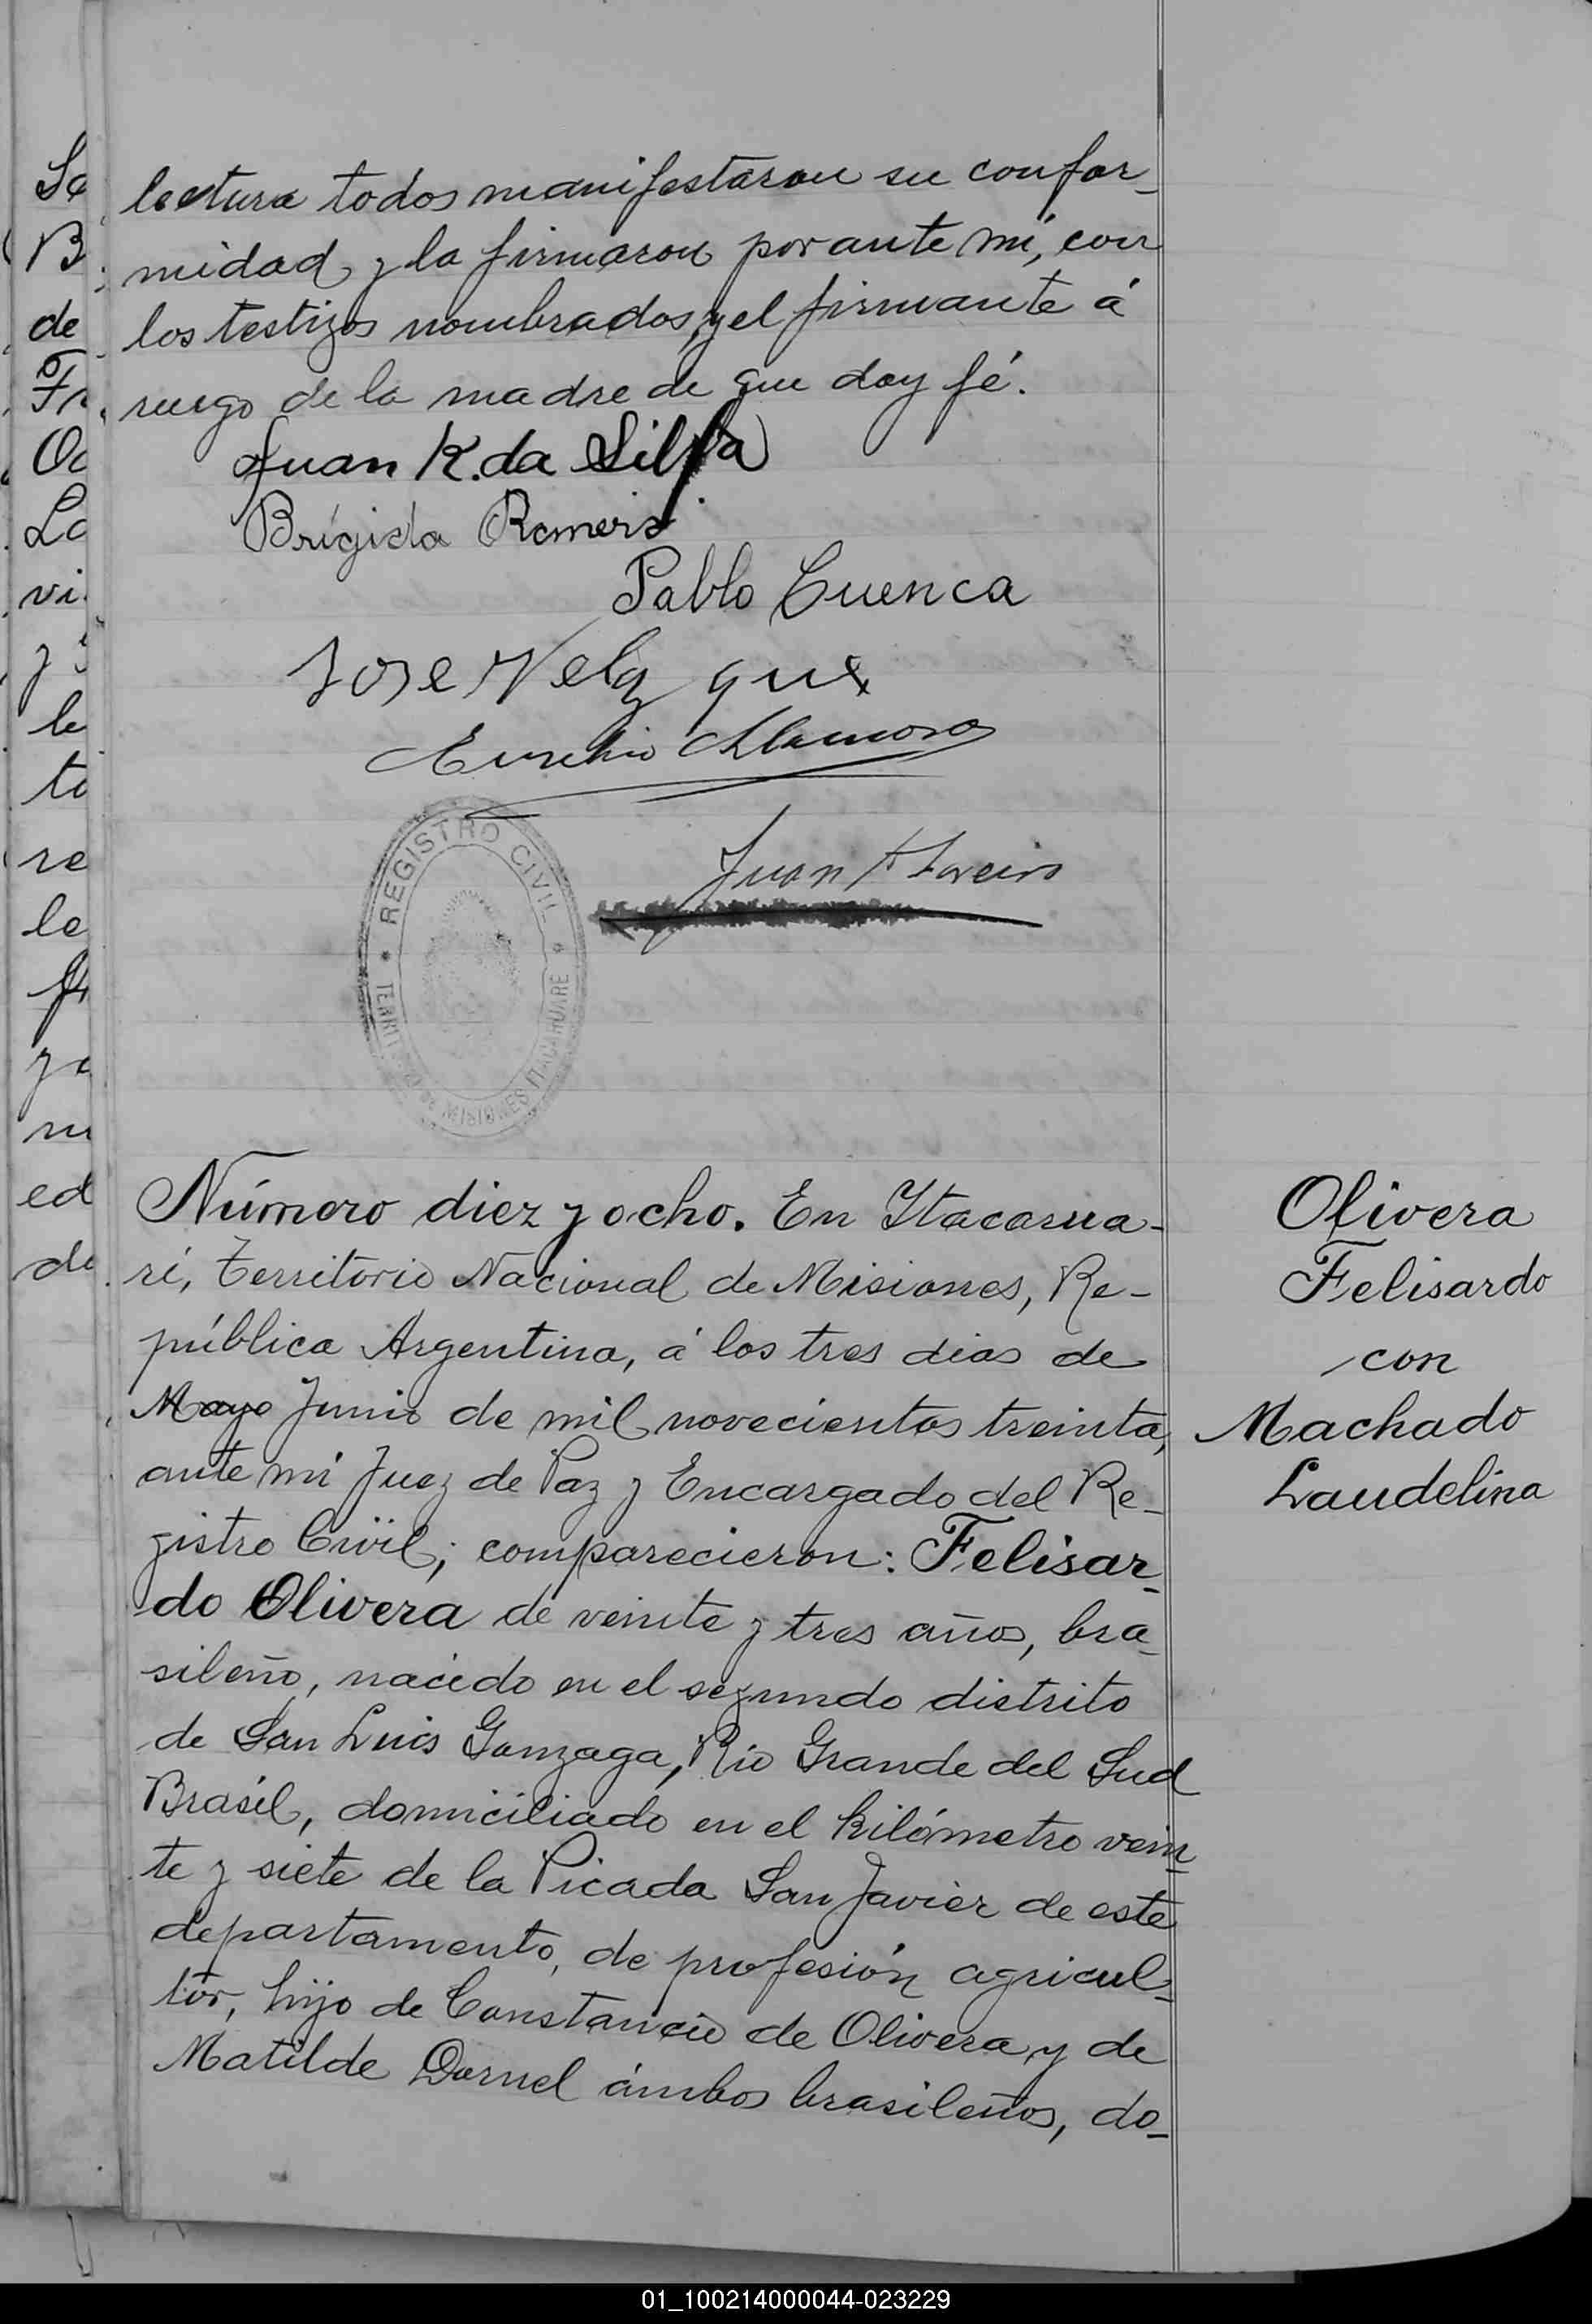 lectura todos manifestaron su confor-
midad, y la firmaron por ante mí, con
los testigos nombrados, y el firmante á
ruego de la madre de que doy fé.
Juan R. da Silva
Brígida Romero
Pablo Cuenca
Jose Velaz que
Eusebio Llamosa
Juan
REGISTRO CIVIL
MISIONES ITACARUARE
Número diez y ocho. En Itacarua-
ré, Territorio Nacional de Misiones, Re-
pública Argentina, á los tres dias de
Mayo Junio de mil novecientos treinta,
ante mi Juez de Paz y Encargado del Re-
gistro Civil; comparecieron: Felisar-
do Olivera de veinte y tres años, bra-
sileño, nacido en el segundo distrito
de San Luis Gonzaga, Rio Grande del Sud
Brasil, domiciliado en el kilómetro vein-
te y siete de la Picada San Javier de este
departamento, de profesión agricul-
tor, hijo de Constancio de Olivera y de
Matilde Dornel ámbos brasileños, do-
Olivera
Felisardo
con
Machado
Laudelina
Sa
B
de
Fr
Oc
La
vi
y
le
to
re
le
fi
ya
ed
de
01_100214000044-023229